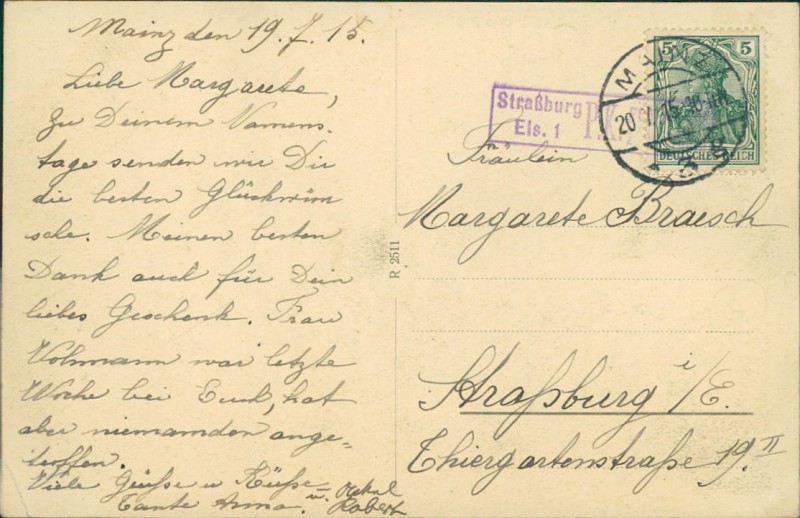 Mainz den 19.7.15.
Liebe Margarete,
Zu Deinem Namens-
tage senden wir Dir
die besten Glückwün
sche. Meinen besten
Dank auch für Dein
liebes Geschenk. Frau
Volmann war letzte
Woche bei Euch, hat
aber niemanden ange-
troffen.
Viele Grüße u Küsse
Tante Anna. u. Onkel
Robert
R. 2511
Straßburg P.K.
Els. 1
MAINZ
20 7 15
5 5
DEUTSCHES REICH
Fräulein
Margarete Braesch
Straßburg i/E.
Thiergartenstraße 19.II